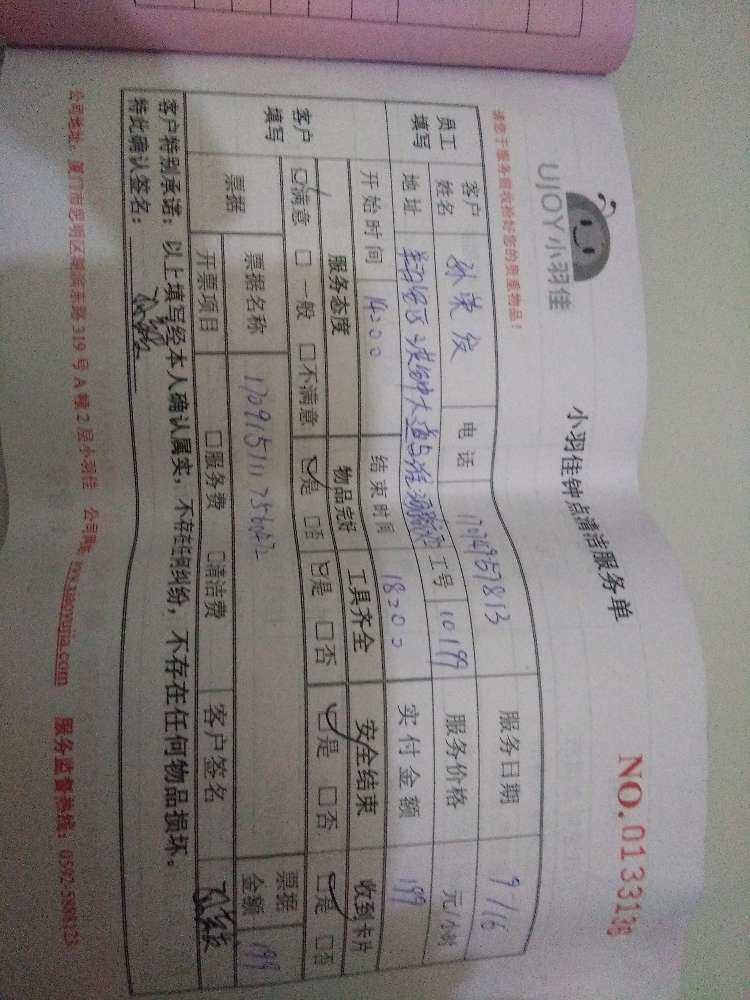 UJOY小羽佳
小羽佳钟点清洁服务单
NO.0133138
请您于服务前收检好您的贵重物品！
员工填写 客户姓名 孙荣发 电话 17049757813 服务日期 9-16
地址 工号 10199 服务价格 元/小时
开始时间 14:00 结束时间 18:00 实付金额 199
客户填写 服务态度 物品完好 工具齐全 安全结束 收到卡片
☑满意 □一般 □不满意 ☑是 □否 ☑是 □否 ☑是 □否 ☑是 □否
票据 票据名称 票据金额 199
开票项目 □服务费 □清洁费 客户签名
客户特别承诺：以上填写经本人确认属实，不存在任何纠纷，不存在任何物品损坏。
特此确认签名：
公司地址：厦门市思明区湖滨东路319号A幢2层小羽佳 公司网站：www.xiaoyujia.com 服务监督热线：0592-5888123